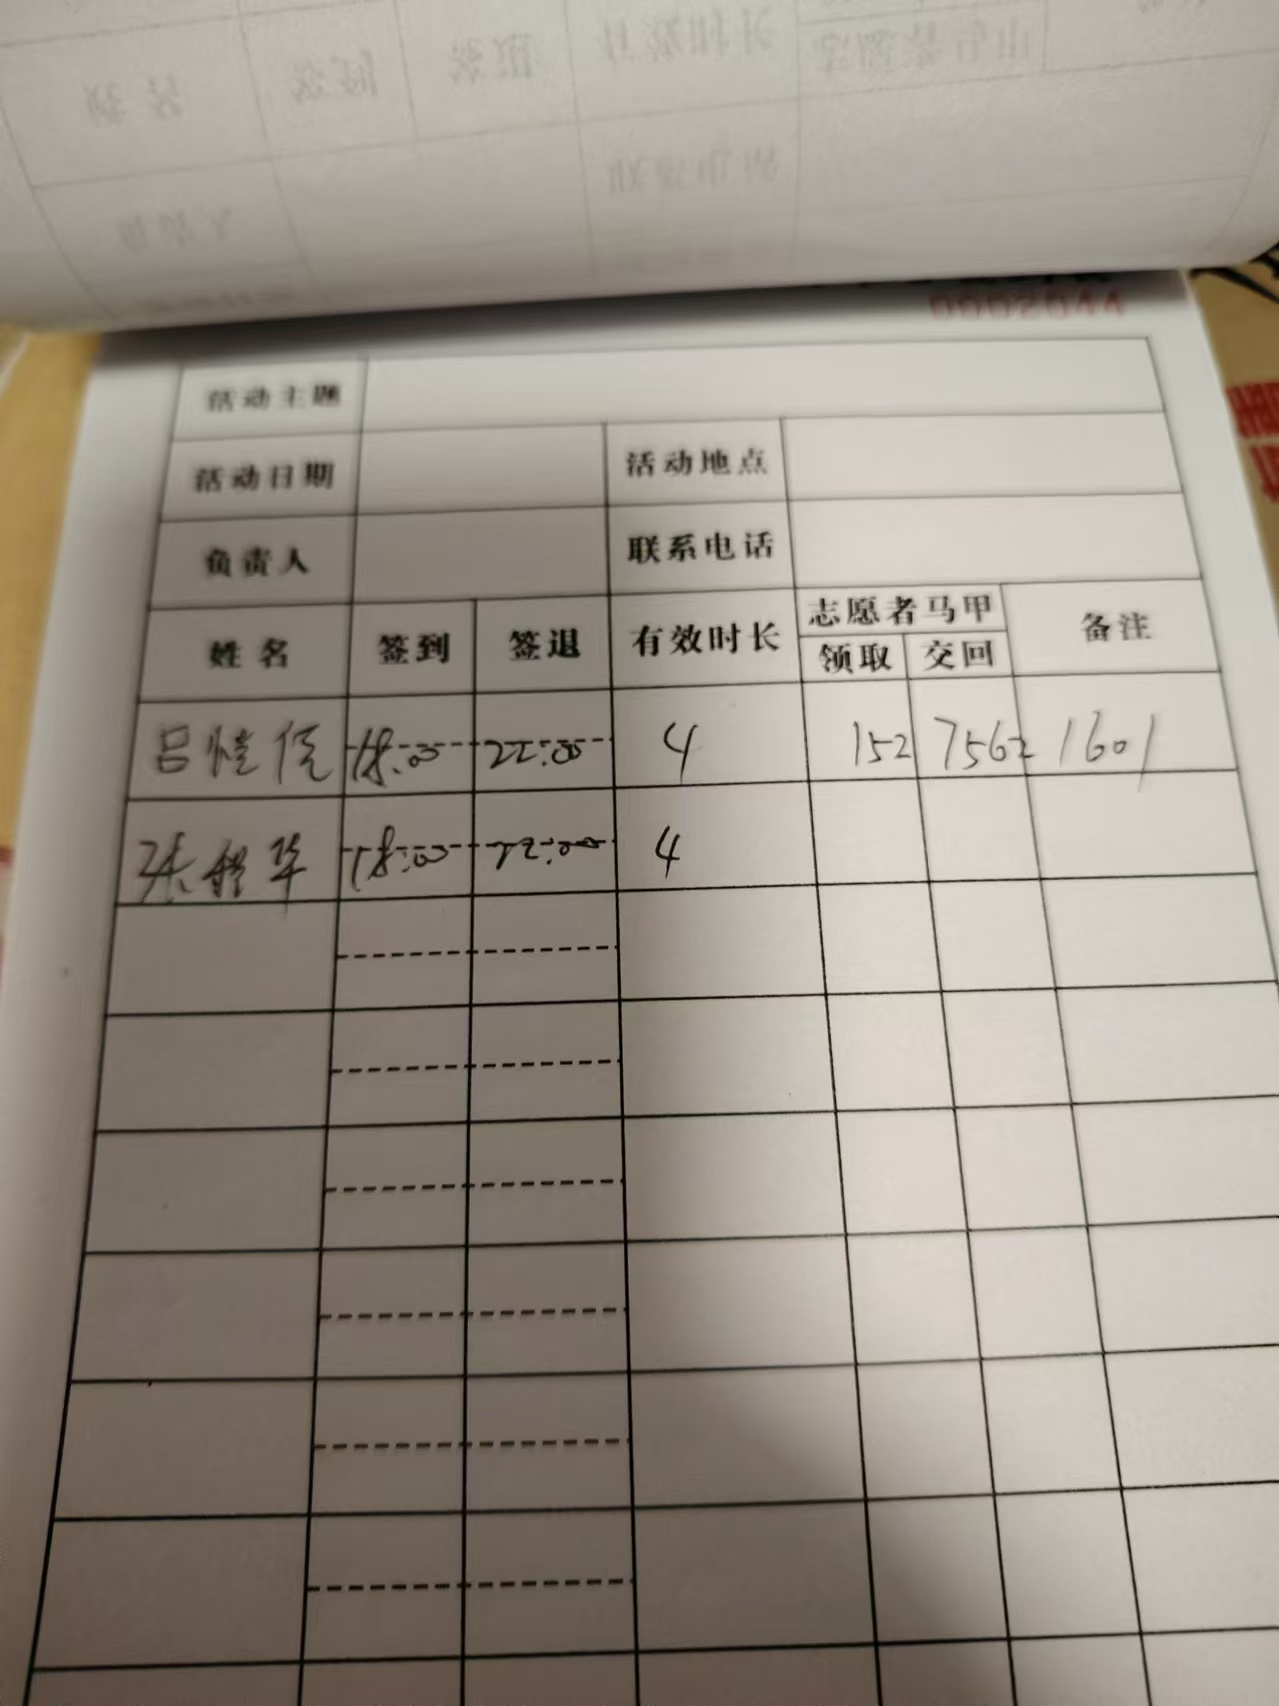 0002044
活动主题
活动日期 活动地点
负责人 联系电话
姓名 签到 签退 有效时长 志愿者马甲 备注
领取 交回
吕 18:00 22:00 4 152 7562 1601
张 华 18:00 22:00 4